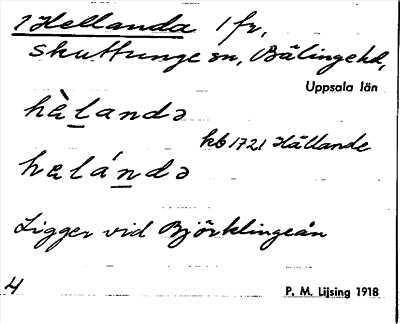 1 Hellanda 1 fr,
Skuttunge sn, Bälinge hd,
Uppsala län
hὰlandə
kb 1721 Hällande
halándə
Ligger vid Björklingeån
4 P. M. Lijsing 1918